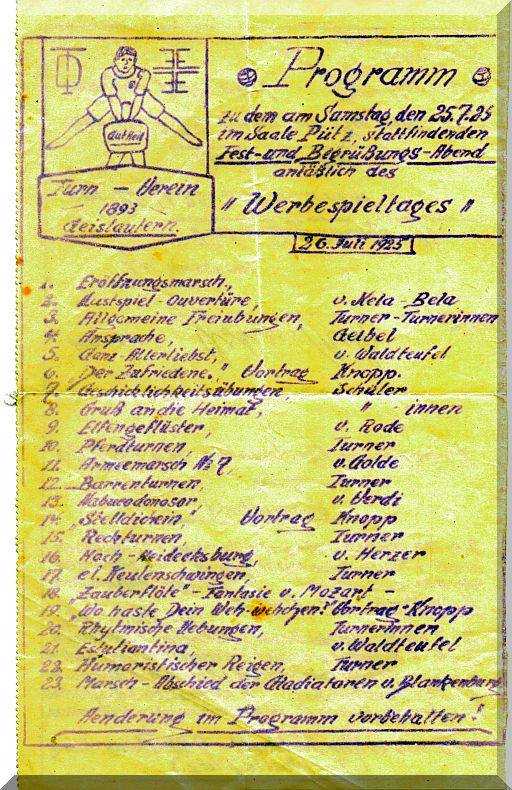 Gut Heil
Turn - Verein
1893
Geislautern.
Programm
zu dem am Samstag, den 25.7.25
im Saale Pütz, stattfindenden
Fest- und Begrüßungs-Abend
anläßlich des
"Werbespieltages"
26. Juli 1925
1. Eröffnungsmarsch,
2. Lustspiel-Ouvertüre, v. Kela-Bela
3. Allgemeine Freiübungen, Turner-Turnerinnen
4. Ansprache, Geibel
5. Ganz Allerliebst, v. Waldteufel
6. "Der Zufriedene." Vortrag Knopp.
7. Geschicklichkeitsübungen, Schüler
8. Gruß an die Heimat, " innen
9. Elfengeflüster, v. Rode
10. Pferdturnen, Turner
11. Armeemarsch No 7, v. Golde
12. Barrenturnen, Turner
13. Nabucodonosor, v. Verdi
14. Vortrag Knopp
15. Reckturnen, Turner
16. Hoch-Heidecksburg, v. Herzer
17. el. Keulenschwingen, Turner
18. "Zauberflöte" - Fantasie v. Mozart -
19. "Wo haste Dein Weh-wehchen?" Vortrag-Knopp
20. Rhytmische Uebungen, Turnerinnen
21. Estudiantina, v. Waldteufel
22. Humoristischer Reigen, Turner
23. Marsch-Abschied der Gladiatoren v. Blankenburg
Aenderung im Programm vorbehalten!